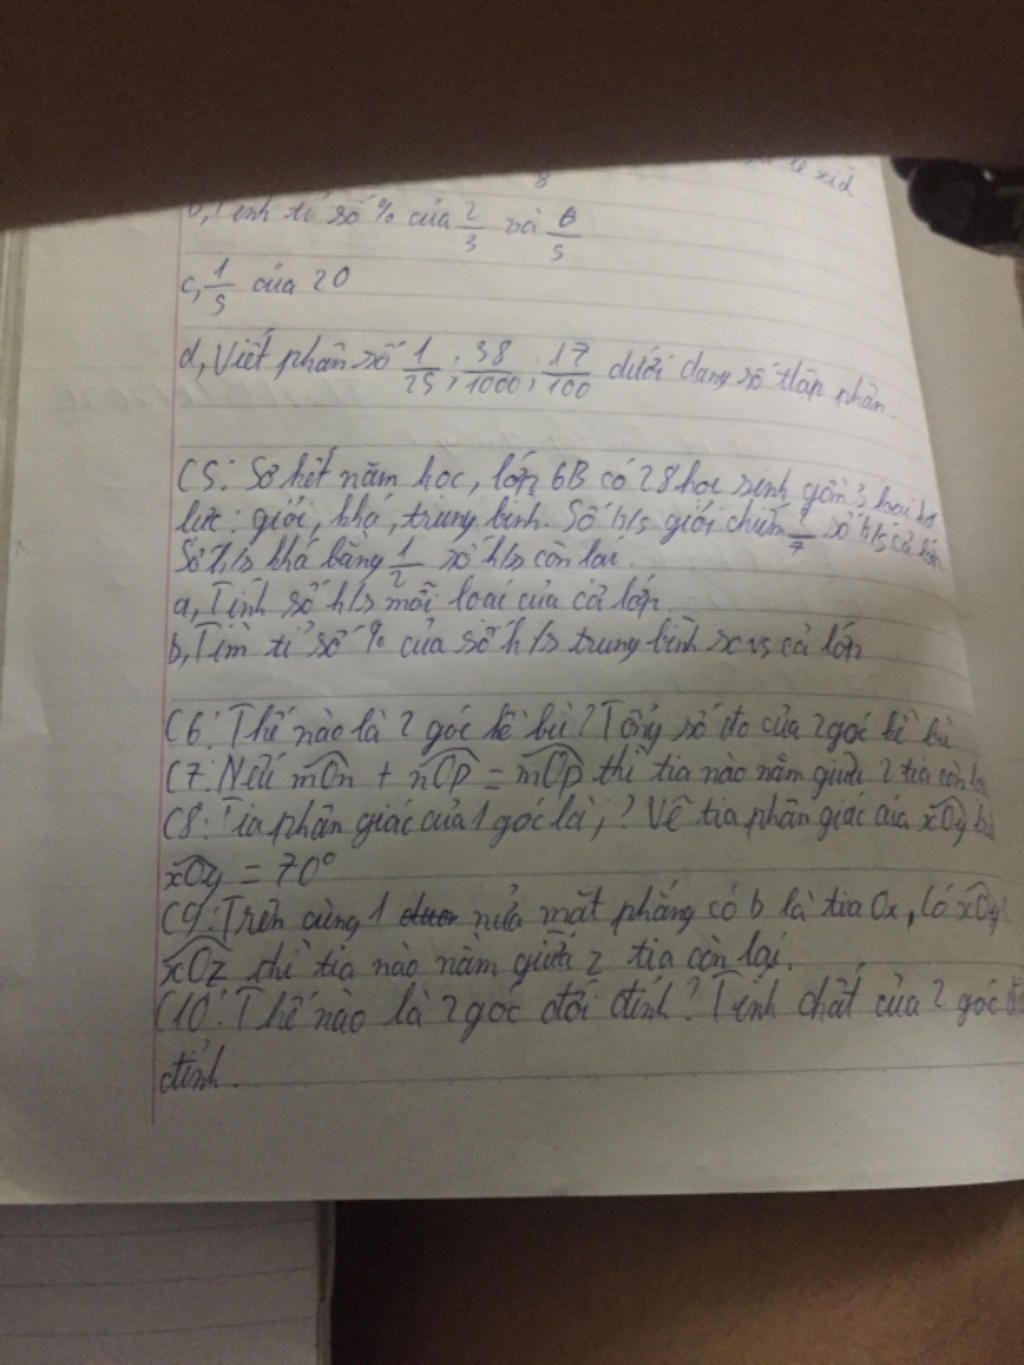 xiđ
8
b, Tính tỉ số % của 2/3 và 8/5
c, 1/5 của 20
d, Viết phân số 1/25; 38/1000; 17/100 dưới dạng số thập phân.
C5: Sơ kết năm học, lớp 6B có 28 học sinh gồm 3 loại
lực: giỏi, khá, trung bình. Số h/s giỏi chiếm /7 số h/s cả lớp
Số h/s khá bằng 1/2 số h/s còn lại.
a, Tính số h/s mỗi loại của cả lớp.
b, Tìm tỉ số % của số h/s trung bình so vs cả lớp
C6: Thế nào là 2 góc kề bù? Tổng số đo của 2 góc kề bù
C7: Nếu mOn + nOp = mOp thì tia nào nằm giữa 2 tia còn
C8: Tia phân giác của 1 góc là;? Vẽ tia phân giác của xOy
xOy = 70°
C9: Trên cùng 1 nửa mặt phẳng có b là tia Ox, có xOy
xOz thì tia nào nằm giữa 2 tia còn lại.
C10: Thế nào là 2 góc đối đỉnh? Tính chất của 2 góc
đỉnh.